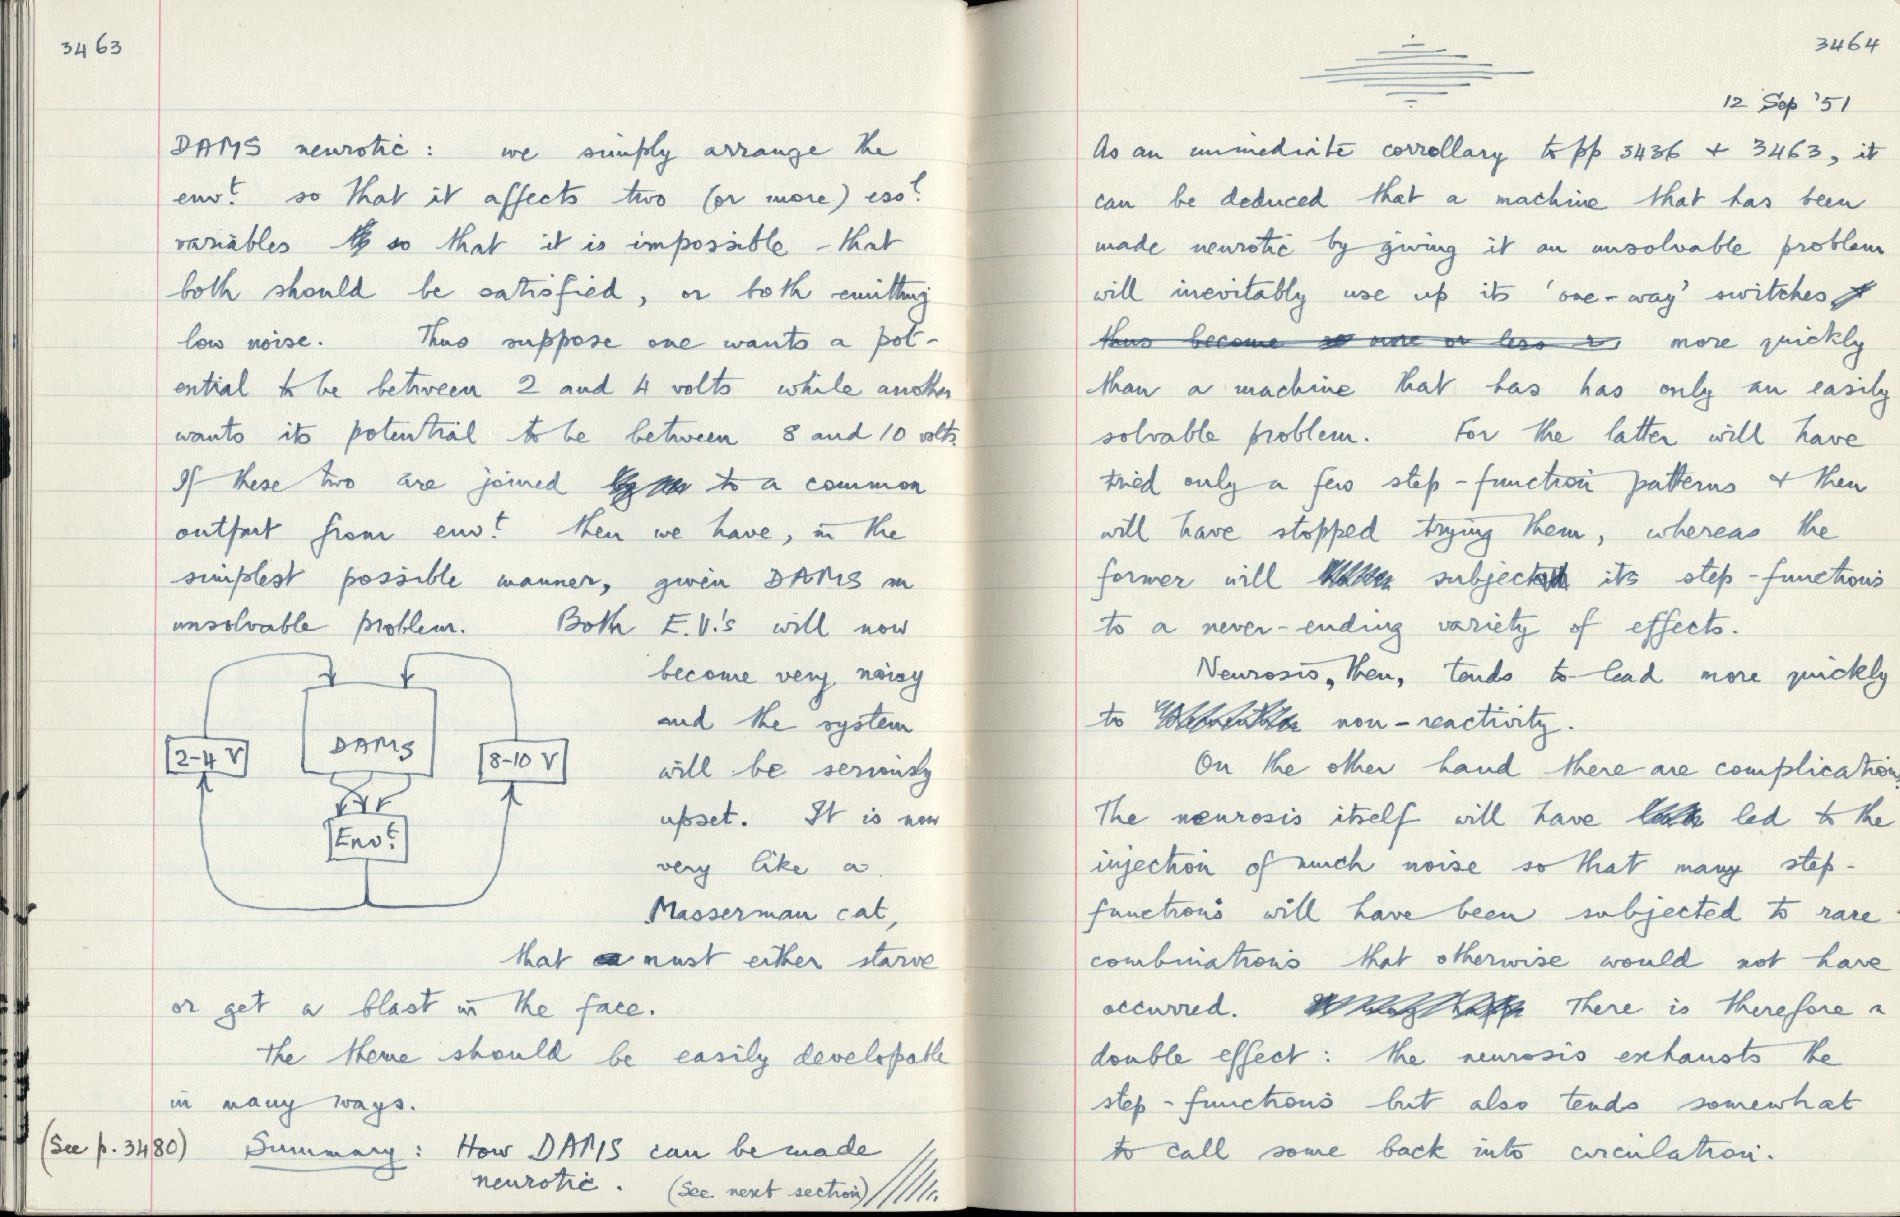 3463
DAMS neurotic: we simply arrange the
envt. so that it affects two (or more) essl.
variables so that it is impossible that
both should be satisfied, or both emitting
low noise. Thus suppose one wants a pot-
ential to be between 2 and 4 volts while another
wants its potential to be between 8 and 10 volts.
If these two are joined to a common
output from envt. then we have, in the
simplest possible manner, given DAMS an
unsolvable problem. Both E.V.'s will now
become very noisy
and the system
will be seriously
upset. It is now
very like a
Masserman cat,
that must either starve
or get a blast in the face.
2-4 V
DAMS
8-10 V
Envt.
The theme should be easily developable
in many ways.
(See p. 3480) Summary: How DAMS can be made
neurotic. (See next section)
3464
12 Sep '51
As an immediate corrollary to pp 3436 + 3463, it
can be deduced that a machine that has been
made neurotic by giving it an unsolvable problem
will inevitably use up its 'one-way' switches
thus become more or less more quickly
than a machine that has has only an easily
solvable problem. For the latter will have
tried only a few step-function patterns + then
will have stopped trying them, whereas the
former will subject its step-functions
to a never-ending variety of effects.
Neurosis, then, tends to lead more quickly
to non-reactivity.
On the other hand there are complications.
The neurosis itself will have led to the
injection of much noise so that many step-
functions will have been subjected to rare
combinations that otherwise would not have
occurred. There is therefore a
double effect: the neurosis exhausts the
step-functions but also tends somewhat
to call some back into circulation.